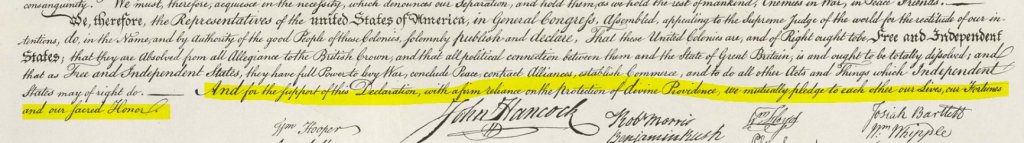 consanguinity. We must, therefore, acquiesce in the necessity, which denounces our Separation, and hold them, as we hold the rest of mankind, Enemies in War, in Peace Friends.
We, therefore, the Representatives of the united States of America, in General Congress, Assembled, appealing to the Supreme Judge of the world for the rectitude of our in-
tentions, do, in the Name, and by Authority of the good People of these Colonies, solemnly publish and declare, That these United Colonies are, and of Right ought to be Free and Independent
States; that they are Absolved from all Allegiance to the British Crown, and that all political connection between them and the State of Great Britain, is and ought to be totally dissolved; and
that as Free and Independent States, they have full Power to levy War, conclude Peace, contract Alliances, establish Commerce, and to do all other Acts and Things which Independent
States may of right do. And for the support of this Declaration, with a firm reliance on the protection of divine Providence, we mutually pledge to each other our Lives, our Fortunes
and our sacred Honor.
John Hancock
Wm Hooper
Robt Morris
Benjamin Rush
Josiah Bartlett
Wm Whipple